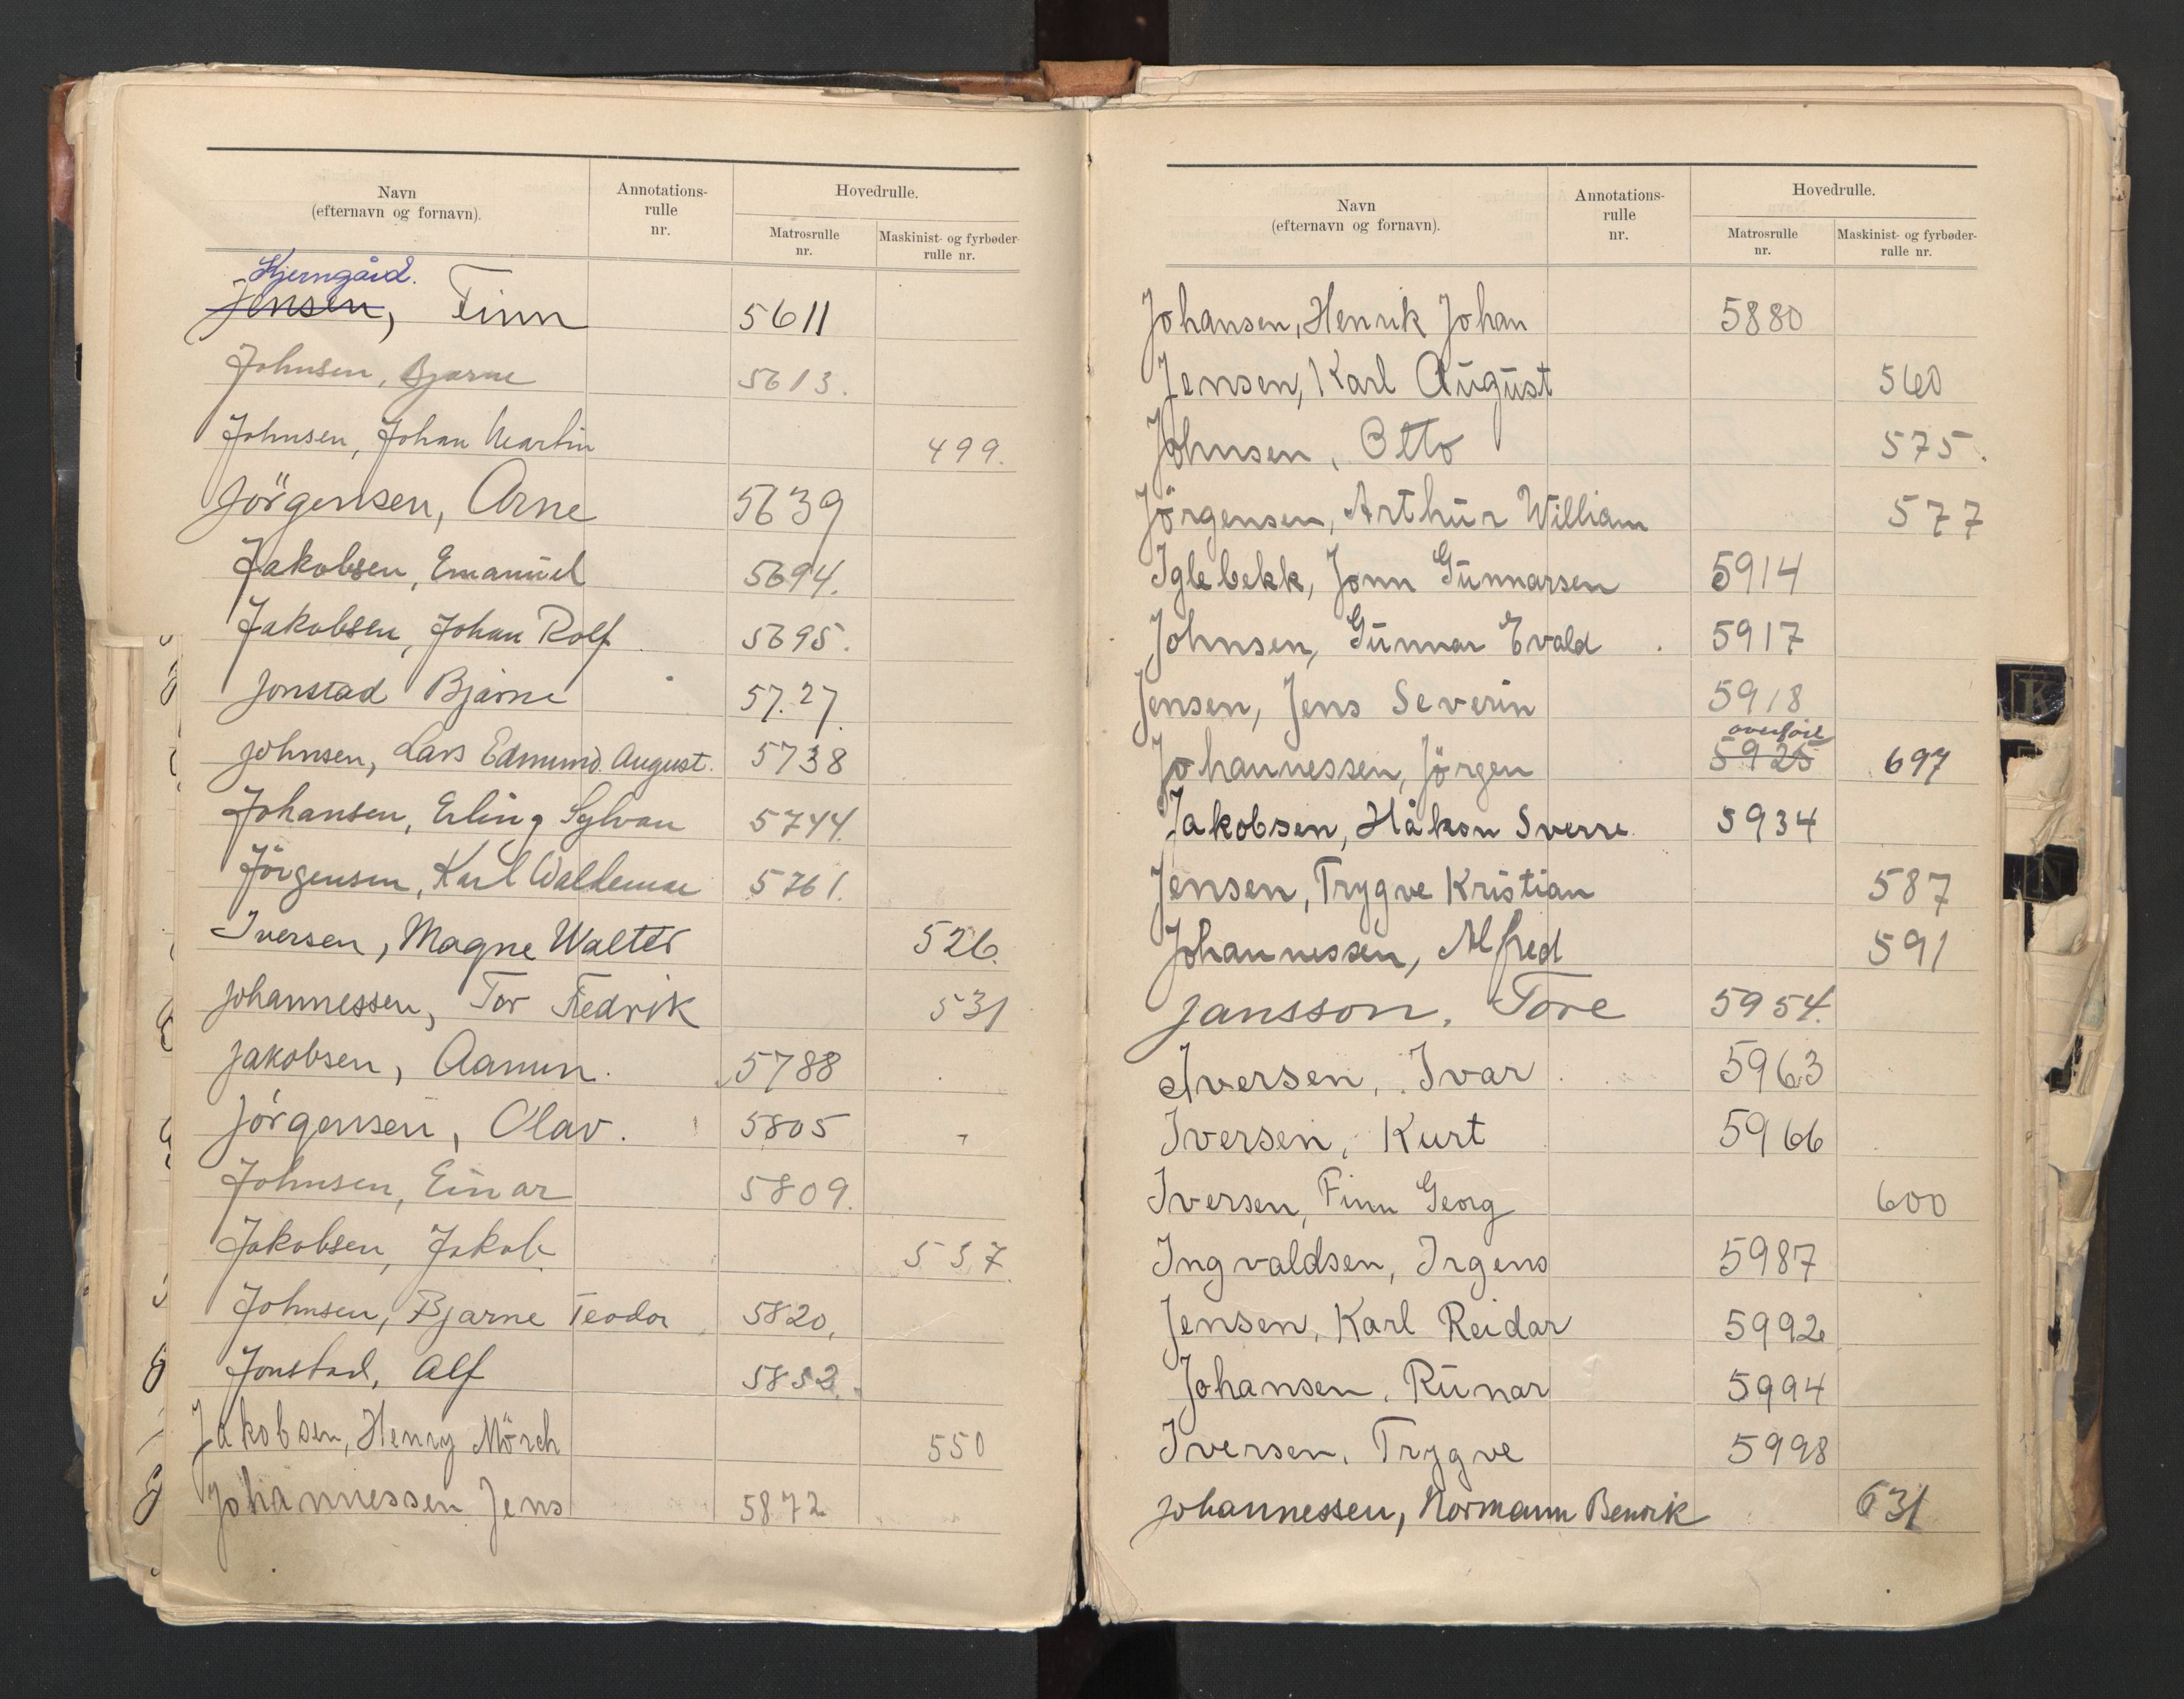 Navn
(efternavn og fornavn).
Annotations-
rulle
nr.
Hovedrulle.
Matrosrulle
nr.
Maskinist- og fyrbøder-
rulle nr.
Kjerngård.
Jensen, Finn 5611
Johnsen, Bjarne 5613.
Johnsen, Johan Martin 499.
Jörgensen, Arne 5639
Jakobsen, Emanuel 5694.
Jakobsen, Johan Rolf 5695.
Jonstad Bjarne 57.27.
Johnsen, Lars Edmund August. 5738
Johansen, Erling Sylvan 5744.
Jörgensen, Karl Waldemar 5761.
Iversen, Magne Walter 526.
Johannessen, Tor Fredrik 531
Jakobsen, Aamun. 5788
Jörgensen, Olav. 5805
Johnsen, Einar 5809.
Jakobsen, Jakob. 537.
Johnsen, Bjarne Teodor 5820.
Jonstad, Alf 5852.
Jakobsen, Henry Mörch 550
Johannessen Jens 5872
Navn
(efternavn og fornavn).
Annotations-
rulle
nr.
Hovedrulle.
Matrosrulle
nr.
Maskinist- og fyrbøder-
rulle nr.
Johansen, Henrik Johan 5880
Jensen, Karl August 560
Johnsen, Otto 575.
Jörgensen, Arthur William 577
Iglebekk, Jonn Gunnarsen 5914
Johnsen, Gunnar Evald 5917
Jensen, Jens Severin 5918
overført
Johannessen, Jörgen 5925 697
Jakobsen, Håkon Sverre. 5934
Jensen, Trygve Kristian 587
Johannessen, Alfred 591
Jansson, Tore 5954.
Iversen, Ivar 5963
Iversen, Kurt 5966
Iversen, Finn Georg 600
Ingvaldsen, Irgens 5987
Jensen, Karl Reidar 5992
Johansen, Runar 5994
Iversen, Trygve 5998
Johannessen, Normann Benrik 631
K
N